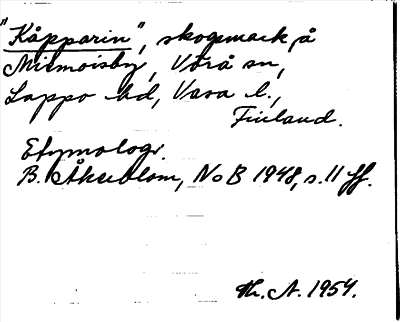 "Kåpparin", skogsmark på
Miemoisby, Vörå sn,
Lappo hd, Vasa l.,
Finland.
Etymologi.
B. Åkerblom, NoB 1948, s. 11 ff.
Th. A. 1954.